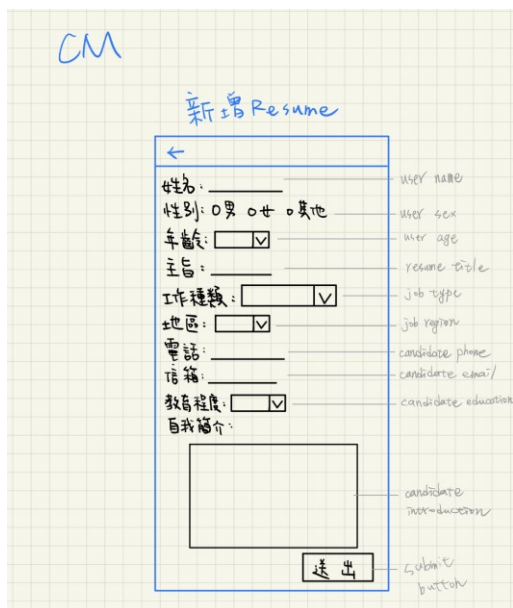 CM
新增Resume
←
姓名: user name
性別: 男 女 其他 user sex
年齡: user age
主旨: resume title
工作種類: job type
地區: job region
電話: candidate phone
信箱: candidate email
教育程度: candidate education
自我簡介:
candidate
introduction
送出 submit
button